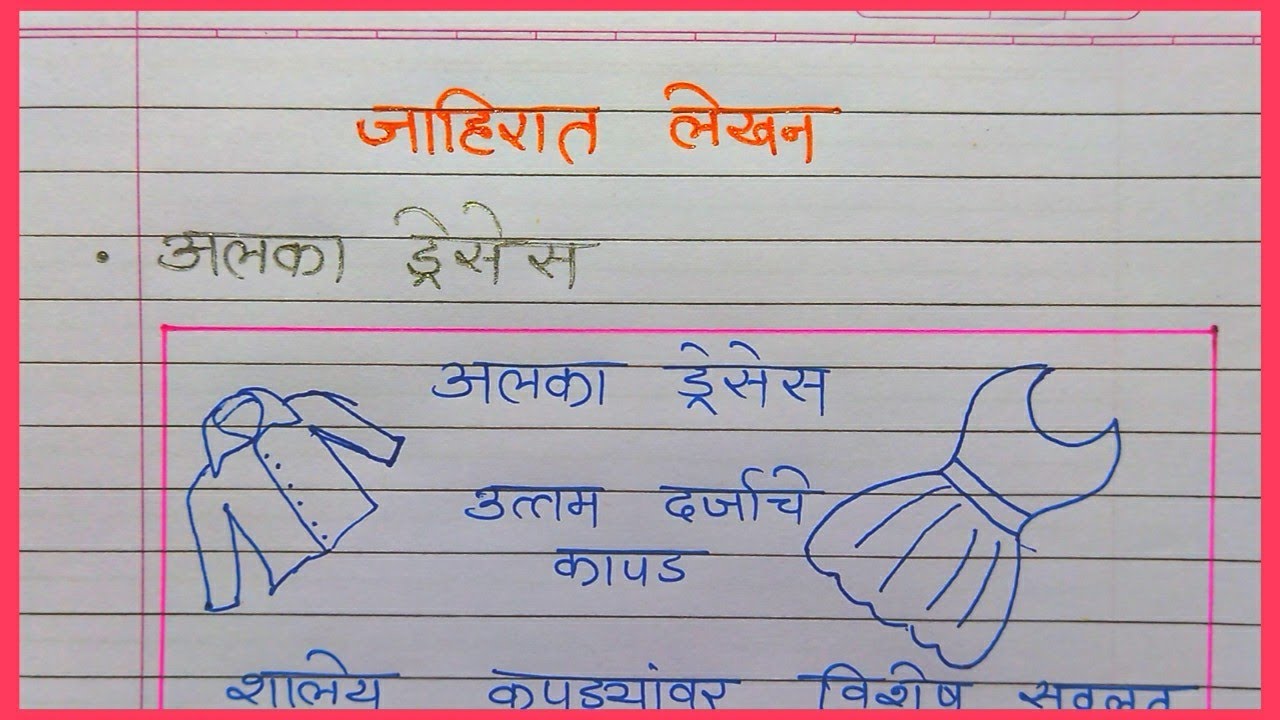 जाहिरात लेखन
• अलका ड्रेसेस
अलका ड्रेसेस
उत्तम दर्जाचे
कापड
शालेय कपड्यांवर विशेष सवलत